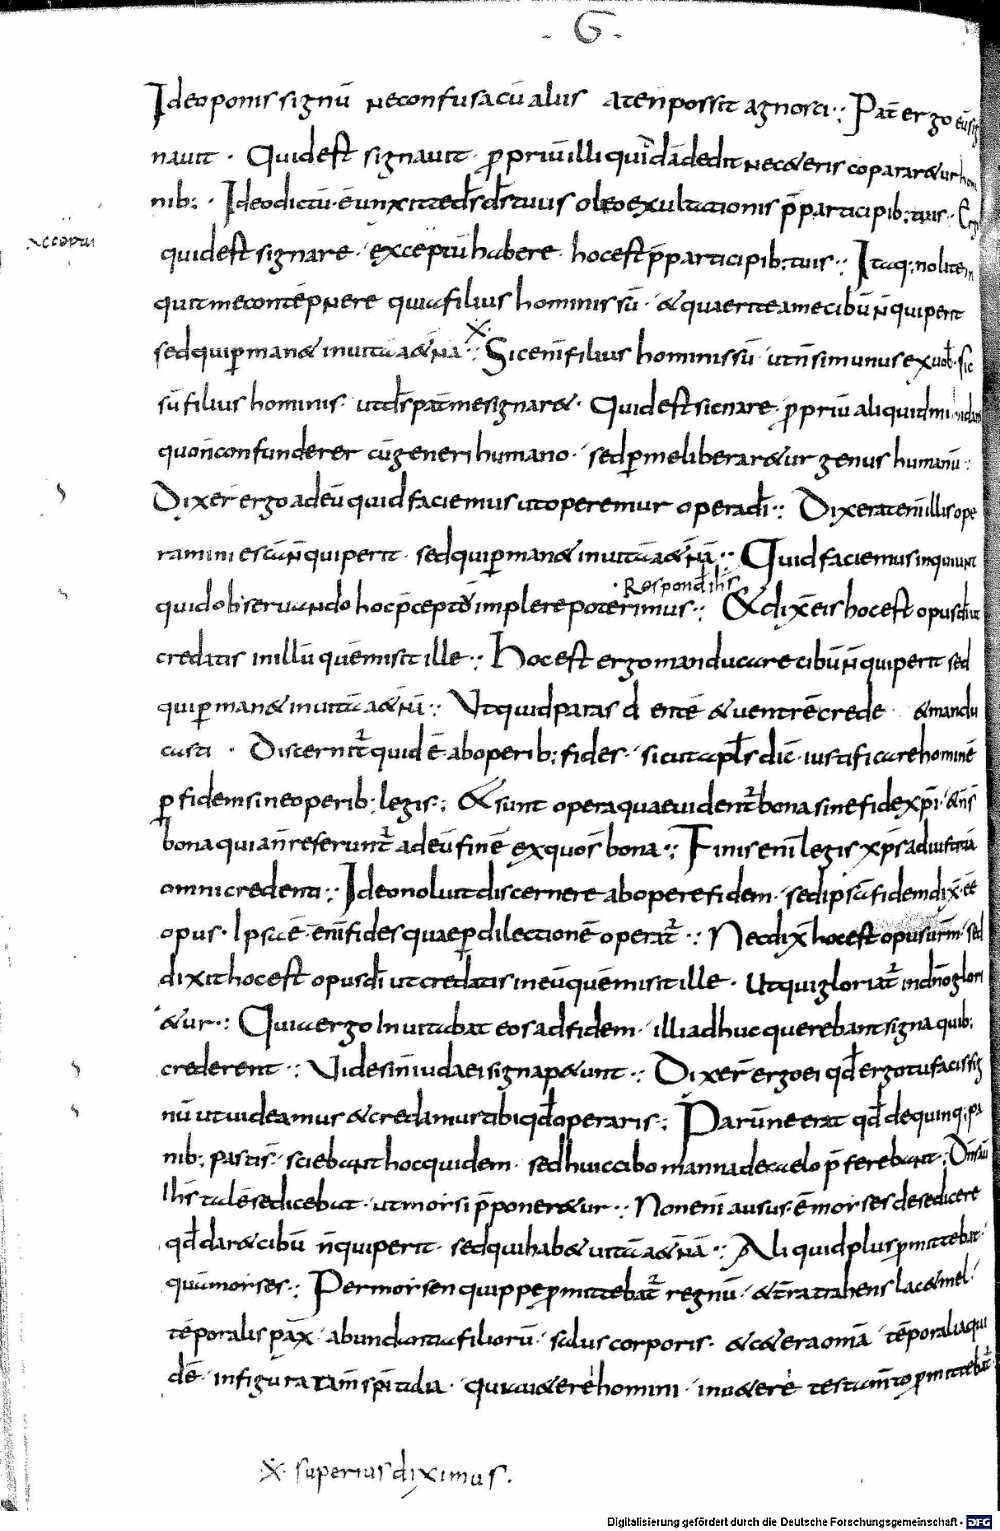 · G ·
Ideo ponis signū ne confusa cū aliis a te ñ possit agnosci :· Pat̄ ergo eū sig
nauit · Quid est signauit · ꝓpriū illi quidā dedit nec & eris coparar&ur homi
nib; · Ideo dictū · ē unxit te d̄s d̄s tuus oleo exultationis p̄ participib; tuis · Ergo
xcoptu
quid est signare · exceptū habere · hoc est p̄ participib; tuis :· Itaq; nolite in
quit me contēpnere quia filius hominis sū · & quaerite a me cibū ñ qui perit
sed qui ꝑman& in uitā aet̄nā :· Sic enī filius hominis sū · ut ñ sim unus ex uob̄ · sic
sū filius hominis · ut d̄s pat̄ me signar& · Quid est sicnare · ꝓpriū aliquid mihi dar&
quo ñ confunderer cū generi humano · sed ꝑ me liberar&ur genus humanū :
Dixer̄ ergo ad eū quid faciemus ut operemur opera d̄i :· Dixerat enī illis ope
ramini escā ñ qui perit · sed qui ꝑman& in uitā aet̄nā :· Quid faciemus inquiunt
· Respond̄ ih̄s
quid obseruando hoc p̄ceptū implere poterimus :· & dix̄ eis hoc est opus d̄i ut
credatis in illū quē misit ille :· Hoc est ergo manducare cibū ñ qui perit sed
qui ꝑman& in uitā aet̄nā :· Ut quid paras dentē & uentrē crede & mandu
casti · Discernit̄ quid ē ab operib; fides · sicut apl̄s dic̄ · iustificare hominē
ꝑ fidem sine operib; legis ; & sunt opera quae uident̄ bona sine fide xp̄i · & ñ s̄
bona quia ñ referunt̄ ad eū finē ex quo s̄ bona :· Finis enī legis xp̄s ad iustitiā
omni credenti :· Ideo noluit discernere ab opere fidem · sed ipsā fidem dix̄ · eē
opus · Ipsa ē · enī fides quae ꝑ dilectionē operat̄ :· Nec dix̄ hoc est opus ur̄m · sed
dixit hoc est opus d̄i ut credatis in eū quē misit ille · Ut qui gloriat̄ in dn̄o glori
&ur :· Quia ergo Inuitabat eos ad fidem · illi adhuc querebant signa quib;
crederent :· Uides ñ iudaei signa p&unt :· Dixer̄ ergo ei qd̄ ergo tu facis sig
nū ut uideamus & credamus tibi qd̄ operaris :· Parū ne erat qd̄ de quinq; pa
nib; pasti s̄ · sciebant hoc quidem · sed huic cibo manna de caelo p̄ferebant · Dn̄s aū
Ih̄s talē se dicebat · ut morsi p̄poner&ur :· Non enī ausus · ē morses de se dicere
qd̄ dar& cibū ñ qui perit · sed qui hab& uitā aet̄nā :· Aliquid plus ꝓmittebat ·
quā morses :· Per morsen quippe ꝓmittebat̄ regnū · & t̄ra trahens lac & mel ·
tēporalis pax · abundantia filiorū · salus corporis · & c&era om̄a tēporalia qui
dē · in figura tam̄ sp̄italia · quia u&eri homini · in u&ere testam̄to ꝓmittebat̄
x superius diximus .
Digitalisierung gefördert durch die Deutsche Forschungsgemeinschaft - DFG